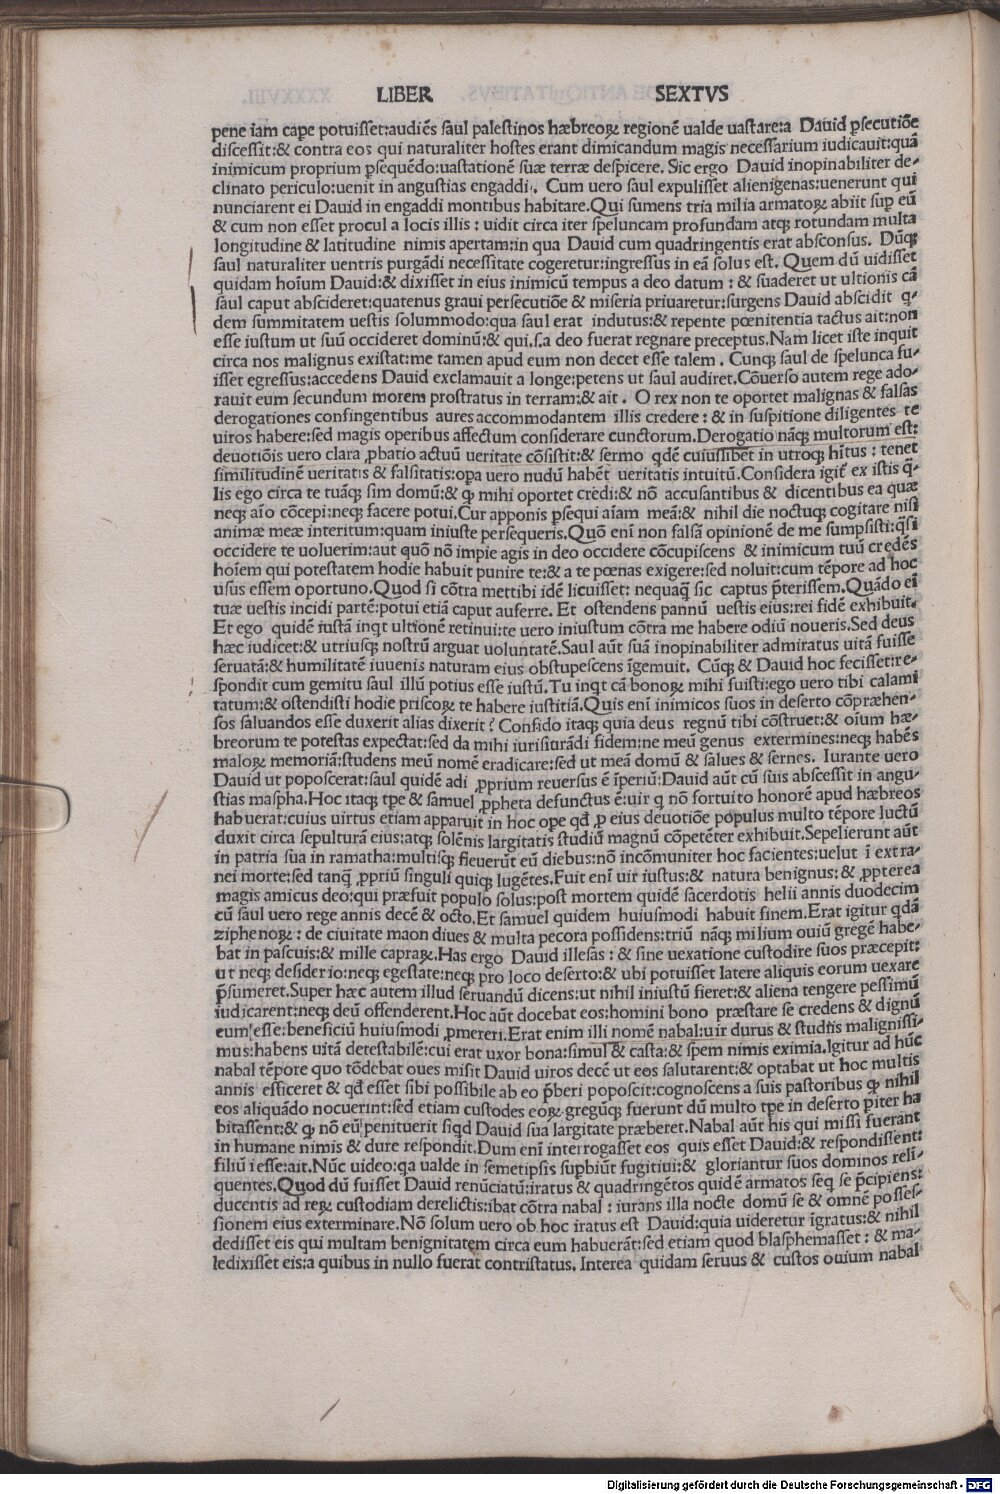 LIBER SEXTVS
pene iam caꝑe potuisset:audiēs saul palestinos hæbreoꝝ regionē ualde uastare:a Dauid ꝑsecutiōe
discessit:& contra eos qui naturaliter hostes erant dimicandum magis necessarium iudicauit:quā
inimicum proprium ꝑsequēdo:uastationē suæ terræ despicere. Sic ergo Dauid inopinabiliter de-
clinato periculo:uenit in angustias engaddi. Cum uero saul expulisset alienigenas:uenerunt qui
nunciarent ei Dauid in engaddi montibus habitare. Qui sumens tria milia armatoꝝ abiit suꝑ eū
& cum non esset procul a locis illis : uidit circa iter speluncam profundam atqꝫ rotundam multa
longitudine & latitudine nimis apertam:in qua Dauid cum quadringentis erat absconsus. Dūqꝫ
saul naturaliter uentris purgādi necessitate cogeretur:ingressus in eā solus est. Quem dū uidisset
quidam hoīum Dauid:& dixisset in eius inimicū tempus a deo datum : & suaderet ut ultionis cā
saul caput abscideret:quatenus graui persecutiōe & miseria priuaretur:surgens Dauid abscidit q-
dem summitatem uestis solummodo:qua saul erat indutus:& repente pœnitentia tactus ait:non
esse iustum ut suū occideret dominū:& qui.s.a deo fuerat regnare preceptus.Nam licet iste inquit
circa nos malignus existat:me tamen apud eum non decet esse talem . Cunqꝫ saul de spelunca fu-
isset egressus:accedens Dauid exclamauit a longe:petens ut saul audiret.Cōuerso autem rege ado-
rauit eum secundum morem prostratus in terram:& ait . O rex non te oportet malignas & falsas
derogationes confingentibus aures accommodantem illis credere : & in suspitione diligentes te
uiros habere:sed magis operibus affectum considerare cunctorum.Derogatio nāqꝫ multorum est:
deuotiōis uero clara ꝓbatio actuū ueritate cōsistit:& sermo qdē cuiuslibet in utroqꝫ hītus : tenet
similitudinē ueritatis & falsitatis:oꝑa uero nudū habēt ueritatis intuitū.Considera igit̄ ex istis q̄-
lis ego circa te tuāqꝫ sim domū:& ꝙ mihi oportet credi:& nō accusantibus & dicentibus ea quæ
neqꝫ aīo cōcepi:neqꝫ facere potui.Cur apponis ꝑsequi aīam meā:& nihil die noctuqꝫ cogitare nisi
animæ meæ interitum:quam iniuste persequeris.Quō enī non falsā opinionē de me sumpsisti:q̄si
occidere te uoluerim:aut quō nō impie agis in deo occidere cōcupiscens & inimicum tuū credēs
hoīem qui potestatem hodie habuit punire te:& a te pœnas exigere:sed noluit:cum tēpore ad hoc
usus essem oportuno.Quod si cōtra mettibi idē licuisset: nequaq̄ sic captus p̄terissem.Quādo eī
tuæ uestis incidi partē:potui etiā caput auferre. Et ostendens pannū uestis eius:rei fidē exhibuit.
Et ego quidē iustā inqt ultionē retinui:te uero iniustum cōtra me habere odiū noueris.Sed deus
hæc iudicet:& utriusqꝫ nostrū arguat uoluntatē.Saul aūt suā inopinabiliter admiratus uitā fuisse
seruatā:& humilitatē iuuenis naturam eius obstupescens īgemuit. Cūqꝫ & Dauid hoc fecisset:re-
spondit cum gemitu saul illū potius esse iustū.Tu inqt cā bonoꝝ mihi fuisti:ego uero tibi calami
tatum:& ostendisti hodie priscoꝝ te habere iustitiā.Quis enī inimicos suos in deserto cōpræhen-
sos saluandos esse duxerit alias dixerit? Confido itaqꝫ quia deus regnū tibi cōstruet:& oīum hæ-
breorum te potestas expectat:sed da mihi iurisiurādi fidem:ne meū genus extermines:neqꝫ habēs
maloꝝ memoriā:studens meū nomē eradicare:sed ut meā domū & salues & sernes. Iurante uero
Dauid ut poposcerat:saul quidē adi ꝓprium reuersus ē īperiū:Dauid aūt cū suis abscessit in angu-
stias maspha.Hoc itaqꝫ tꝑe & samuel ꝓpheta defunctus ē:uir q nō fortuito honorē apud hæbreos
habuerat:cuius uirtus etiam apparuit in hoc oꝑe qđ ꝓ eius deuotiōe populus multo tēpore luctū
duxit circa sepulturā eius:atqꝫ solēnis largitatis studiū magnū cōpetēter exhibuit.Sepelierunt aūt
in patria sua in ramatha:multisqꝫ fleuerūt eū diebus:nō incōmuniter hoc facientes:uelut ī extra-
nei morte:sed tanq̄ ꝓpriū singuli quiqꝫ lugētes.Fuit enī uir iustus:& natura benignus:& ꝓpterea
magis amicus deo:qui præfuit populo solus:post mortem quidē sacerdotis helii annis duodecim
cū saul uero rege annis decē & octo.Et samuel quidem huiusmodi habuit finem.Erat igitur qdā
ziphenoꝝ : de ciuitate maon diues & multa pecora possidens:triū nāqꝫ milium ouiū gregē habe-
bat in pascuis:& mille capraꝝ.Has ergo Dauid illesas : & sine uexatione custodire suos præcepit:
ut neqꝫ desiderio:neqꝫ egestate:neqꝫ pro loco deserto:& ubi potuisset latere aliquis eorum uexare
p̄sumeret.Super hæc autem illud seruandū dicens:ut nihil iniustū fieret:& aliena tengere pessimū
iudicarent:neqꝫ deū offenderent.Hoc aūt docebat eos:homini bono præstare se credens & dignū
eum esse:beneficiū huiusmodi ꝓmereri.Erat enim illi nomē nabal:uir durus & studiis malignissi-
mus:habens uitā detestabilē:cui erat uxor bona:simul & casta:& spem nimis eximia.Igitur ad hūc
nabal tēpore quo tōdebat oues misit Dauid uiros decē ut eos salutarent:& optabat ut hoc multis
annis efficeret & qđ esset sibi possibile ab eo p̄beri poposcit:cognoscens a suis pastoribus ꝙ nihil
eos aliquādo nocuerint:sed etiam custodes eoꝝ gregūqꝫ fuerunt dū multo tꝑe in deserto ꝑiter ha
bitassent:& ꝙ nō eū penituerit siqd Dauid sua largitate præberet.Nabal aūt his qui missi fuerant
in humane nimis & dure respondit.Dum enī interrogasset eos quis esset Dauid:& respondissent:
filiū iesse:ait.Nūc uideo:qa ualde in semetipsis suꝑbiūt fugitiui:& gloriantur suos dominos reli-
quentes.Quod dū fuisset Dauid renūciatū:iratus & quadringētos quidē armatos seqꝫ se p̄cipiens:
ducentis ad reꝝ custodiam derelictis:ibat cōtra nabal : iurans illa nocte domū se & omnē posses-
sionem eius exterminare.Nō solum uero ob hoc iratus est Dauid:quia uideretur īgratus:& nihil
dedisset eis qui multam benignitatem circa eum habuerāt:sed etiam quod blasphemasset : & ma-
ledixisset eis:a quibus in nullo fuerat contristatus. Interea quidam seruus & custos ouium nabal
Digitalisierung gefördert durch die Deutsche Forschungsgemeinschaft - DFG